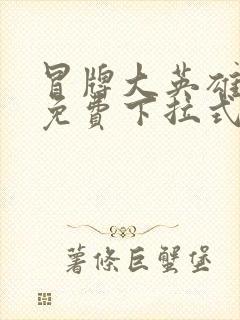 冒牌大英雄
免費下拉式
薯條巨蟹堡